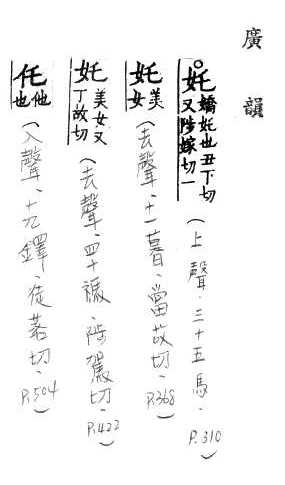 廣韻
。奼嬌奼也丑下切又陟嫁切一(上聲.三十五馬.P.310)
奼美女(去聲.十一暮.當故切.P.368)
奼美女又丁故切(去聲.四十禡.陟駕切.P.422)
仛他也(入聲.十九鐸.徒落切.P.504)